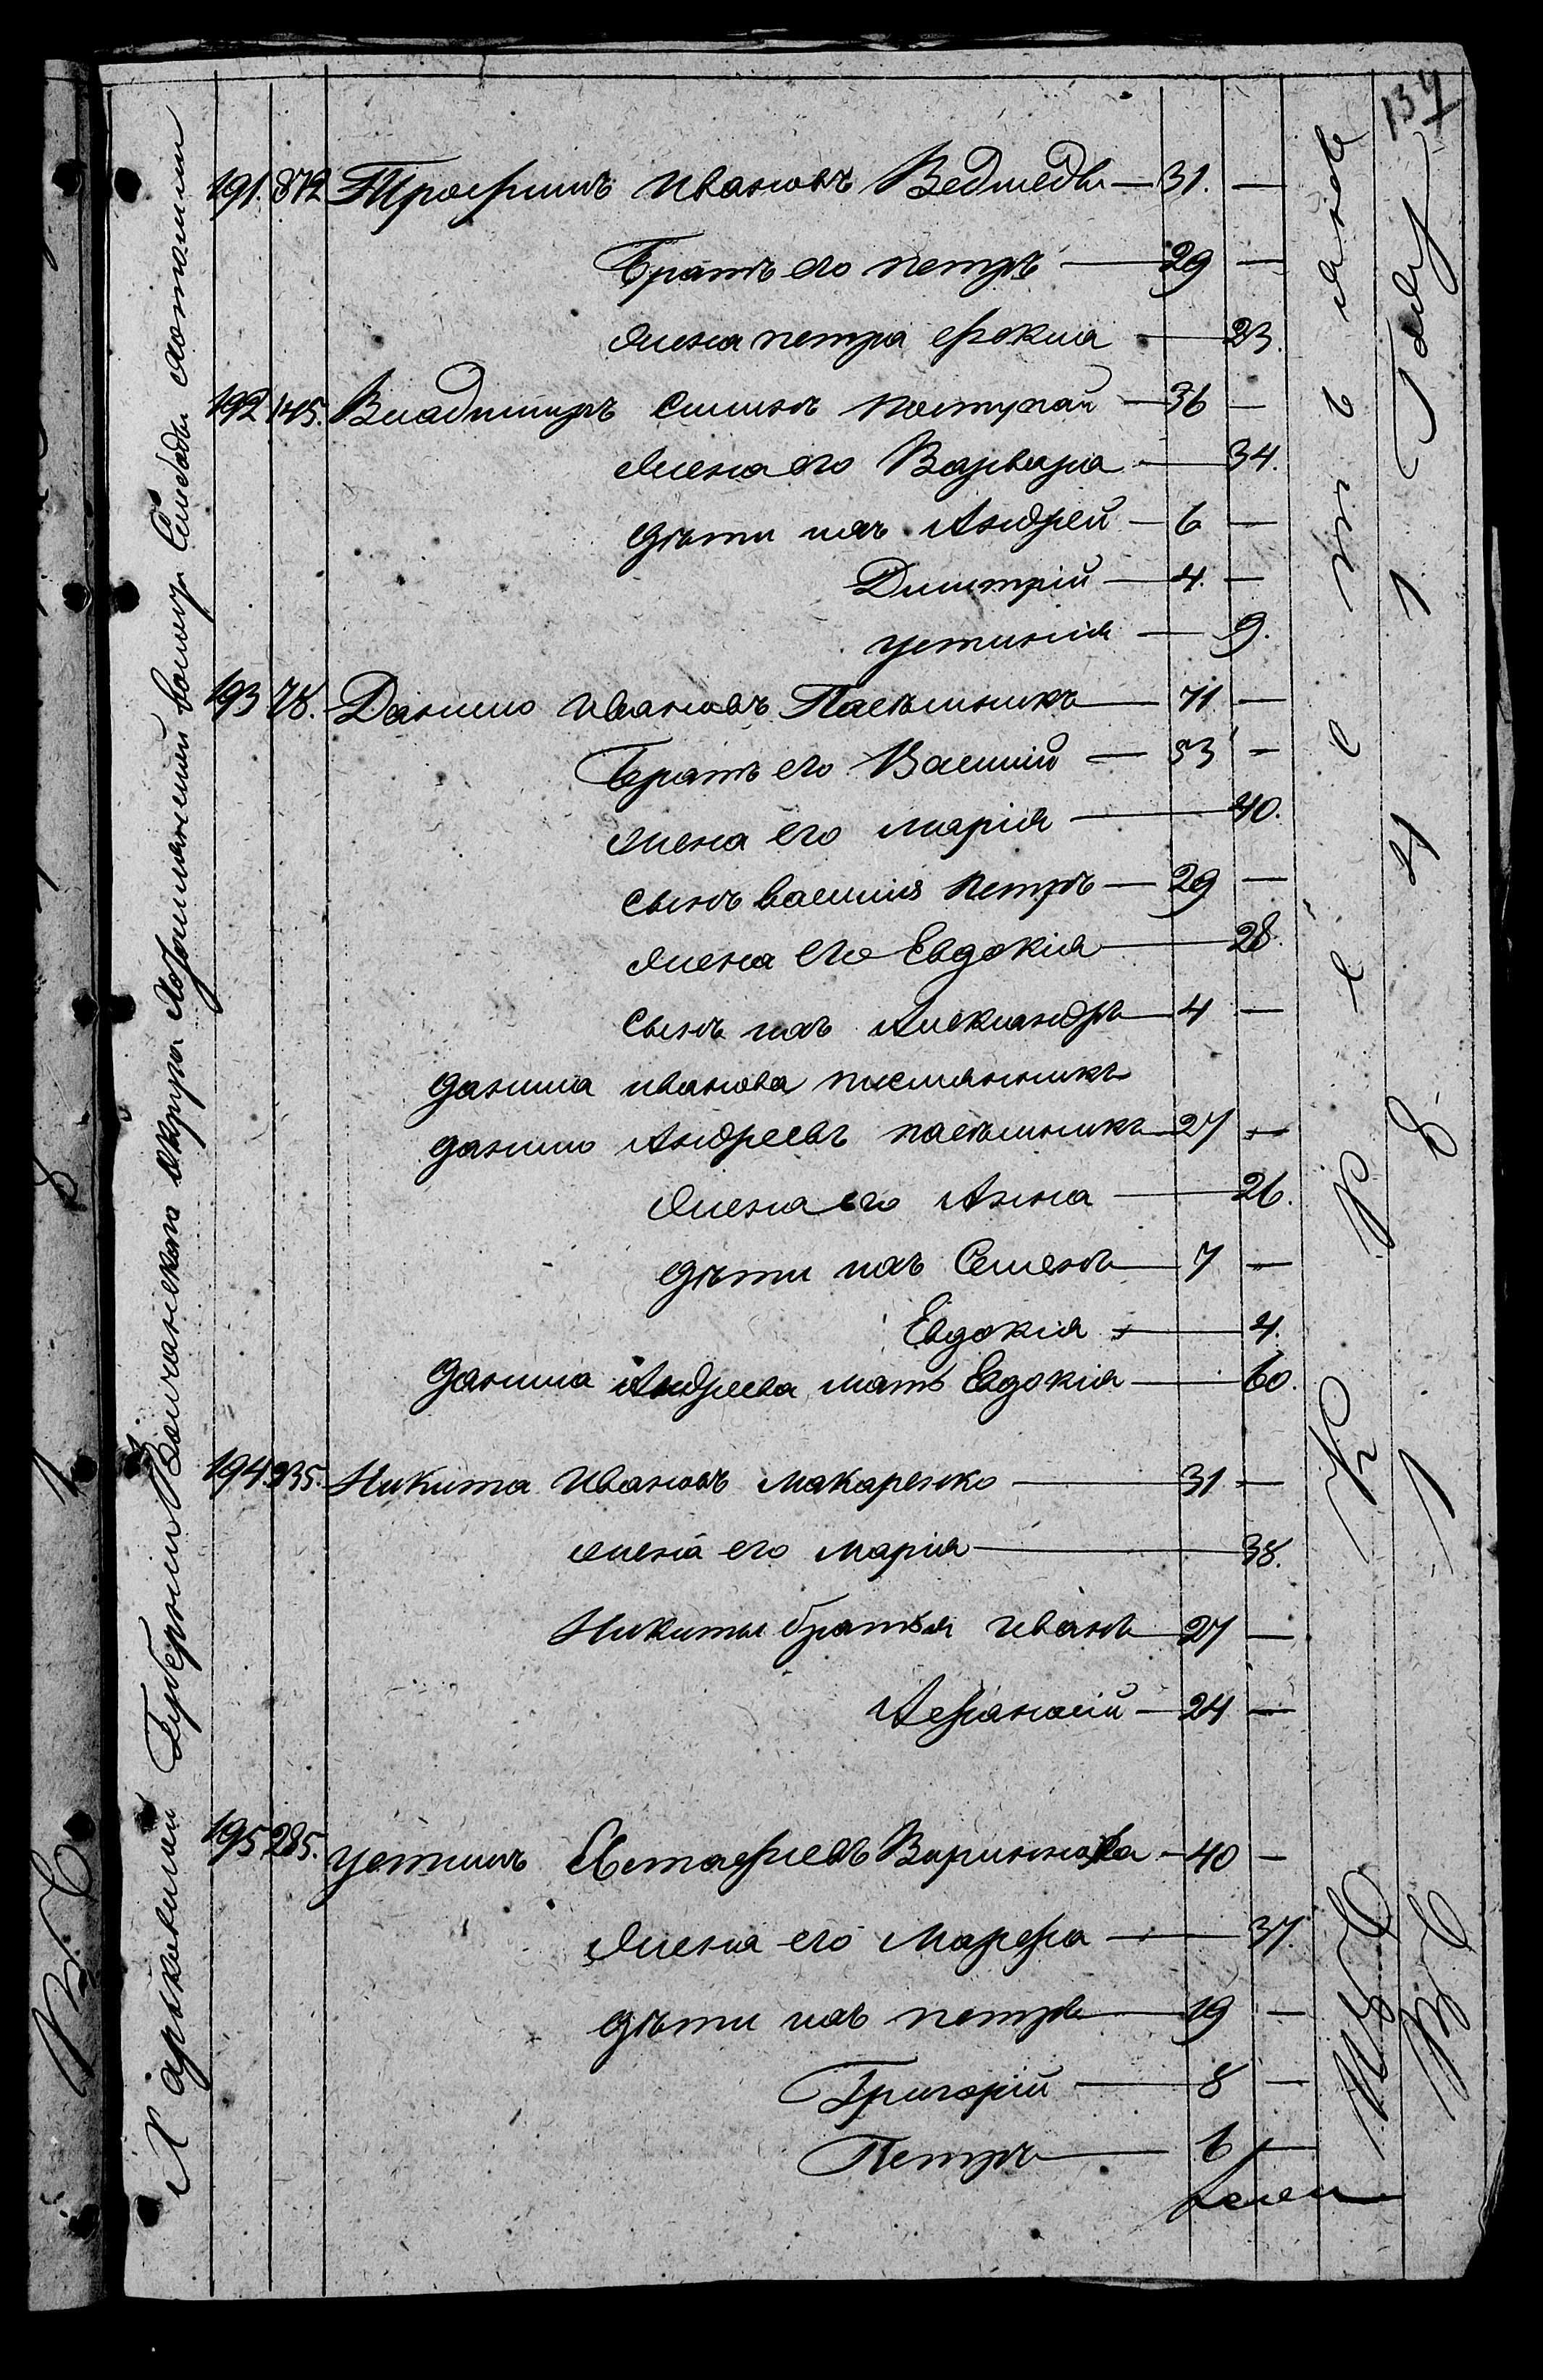 137
Харьковской Губерніи Волчанскаго округа Хотомлянской волости Слободы Хотомли
191. 872 Трофимъ Ивановъ Ведмедь — 31. —
Братъ его петръ — 29 —
жена петра фекла — 23.
192 145. Владимиръ Силинъ поступай — 36 —
жена его Варвара — 34.
дѣти ихъ Андрей — 6 —
Димитрій — 4. —
устинія — 9.
193 78. Данило Ивановъ Пасѣшникъ — 71 —
Братъ его Василій — 53 —
жена его марія — 40.
сынъ василія петръ — 29 —
жена его Евдокія — 28.
сынъ ихъ Александръ — 4 —
данила иванова племянникъ
данило Андреевъ пасѣшникъ — 27 —
жена его Анна — 26.
дѣти ихъ Семенъ — 7 —
Евдокія — 4.
данила Андреева мать Евдокія — 60.
194. 935. Никита Ивановъ макаренко — 31 —
жена его марія — 38.
Никиты братья иванъ — 27 —
Афанасій — 24 —
195 285. устинъ Евстафіевъ — 40 —
жена его Марфа — 37.
дѣти ихъ петръ — 19 —
Григорій — 8 —
Петръ — 6 —
крестьянъ
1
8
1